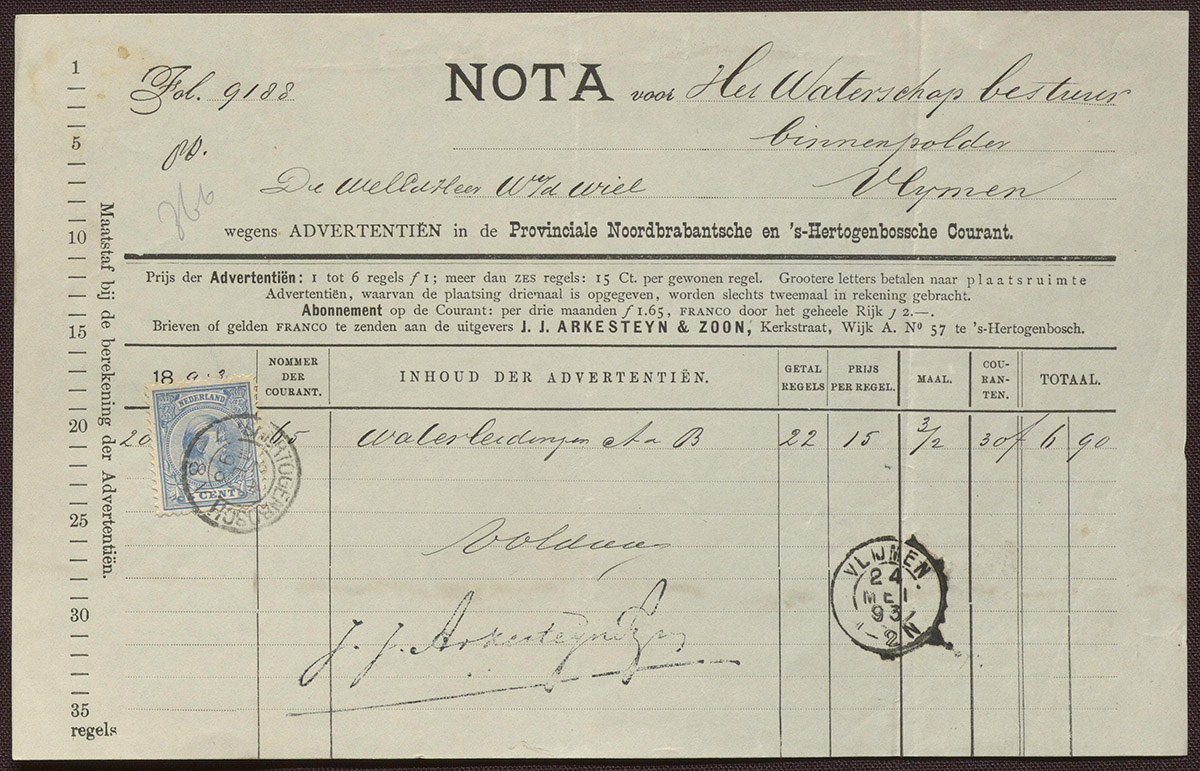 Fol. 9188
NOTA voor Het Waterschap bestuur
binnenpolder
Vlymen
wegens ADVERTENTIËN in de Provinciale Noordbrabantsche en 's-Hertogenbossche Courant.
Prijs der Advertentiën: 1 tot 6 regels f 1; meer dan ZES regels: 15 Ct. per gewonen regel. Grootere letters betalen naar plaatsruimte
Advertentiën, waarvan de plaatsing driemaal is opgegeven, worden slechts tweemaal in rekening gebracht.
Abonnement op de Courant: per drie maanden f 1.65, FRANCO door het geheele Rijk f 2.—.
Brieven of gelden FRANCO te zenden aan de uitgevers J. J. ARKESTEYN & ZOON, Kerkstraat, Wijk A. No 57 te 's-Hertogenbosch.
18
NOMMER DER COURANT.
INHOUD DER ADVERTENTIËN.
GETAL REGELS
PRIJS PER REGEL.
MAAL.
COU-
RAN-
TEN.
TOTAAL.
20 65 Waterleidingen A B 22 15 3/2 30 f 6 90
NEDERLAND
CENT
'S HERTOGENBOSCH
Voldaan
J. J. Arkesteyn & Zn
VLIJMEN
24
MEI
93
Maatstaf bij de berekening der Advertentiën.
1
5
10
15
20
25
30
35
regels